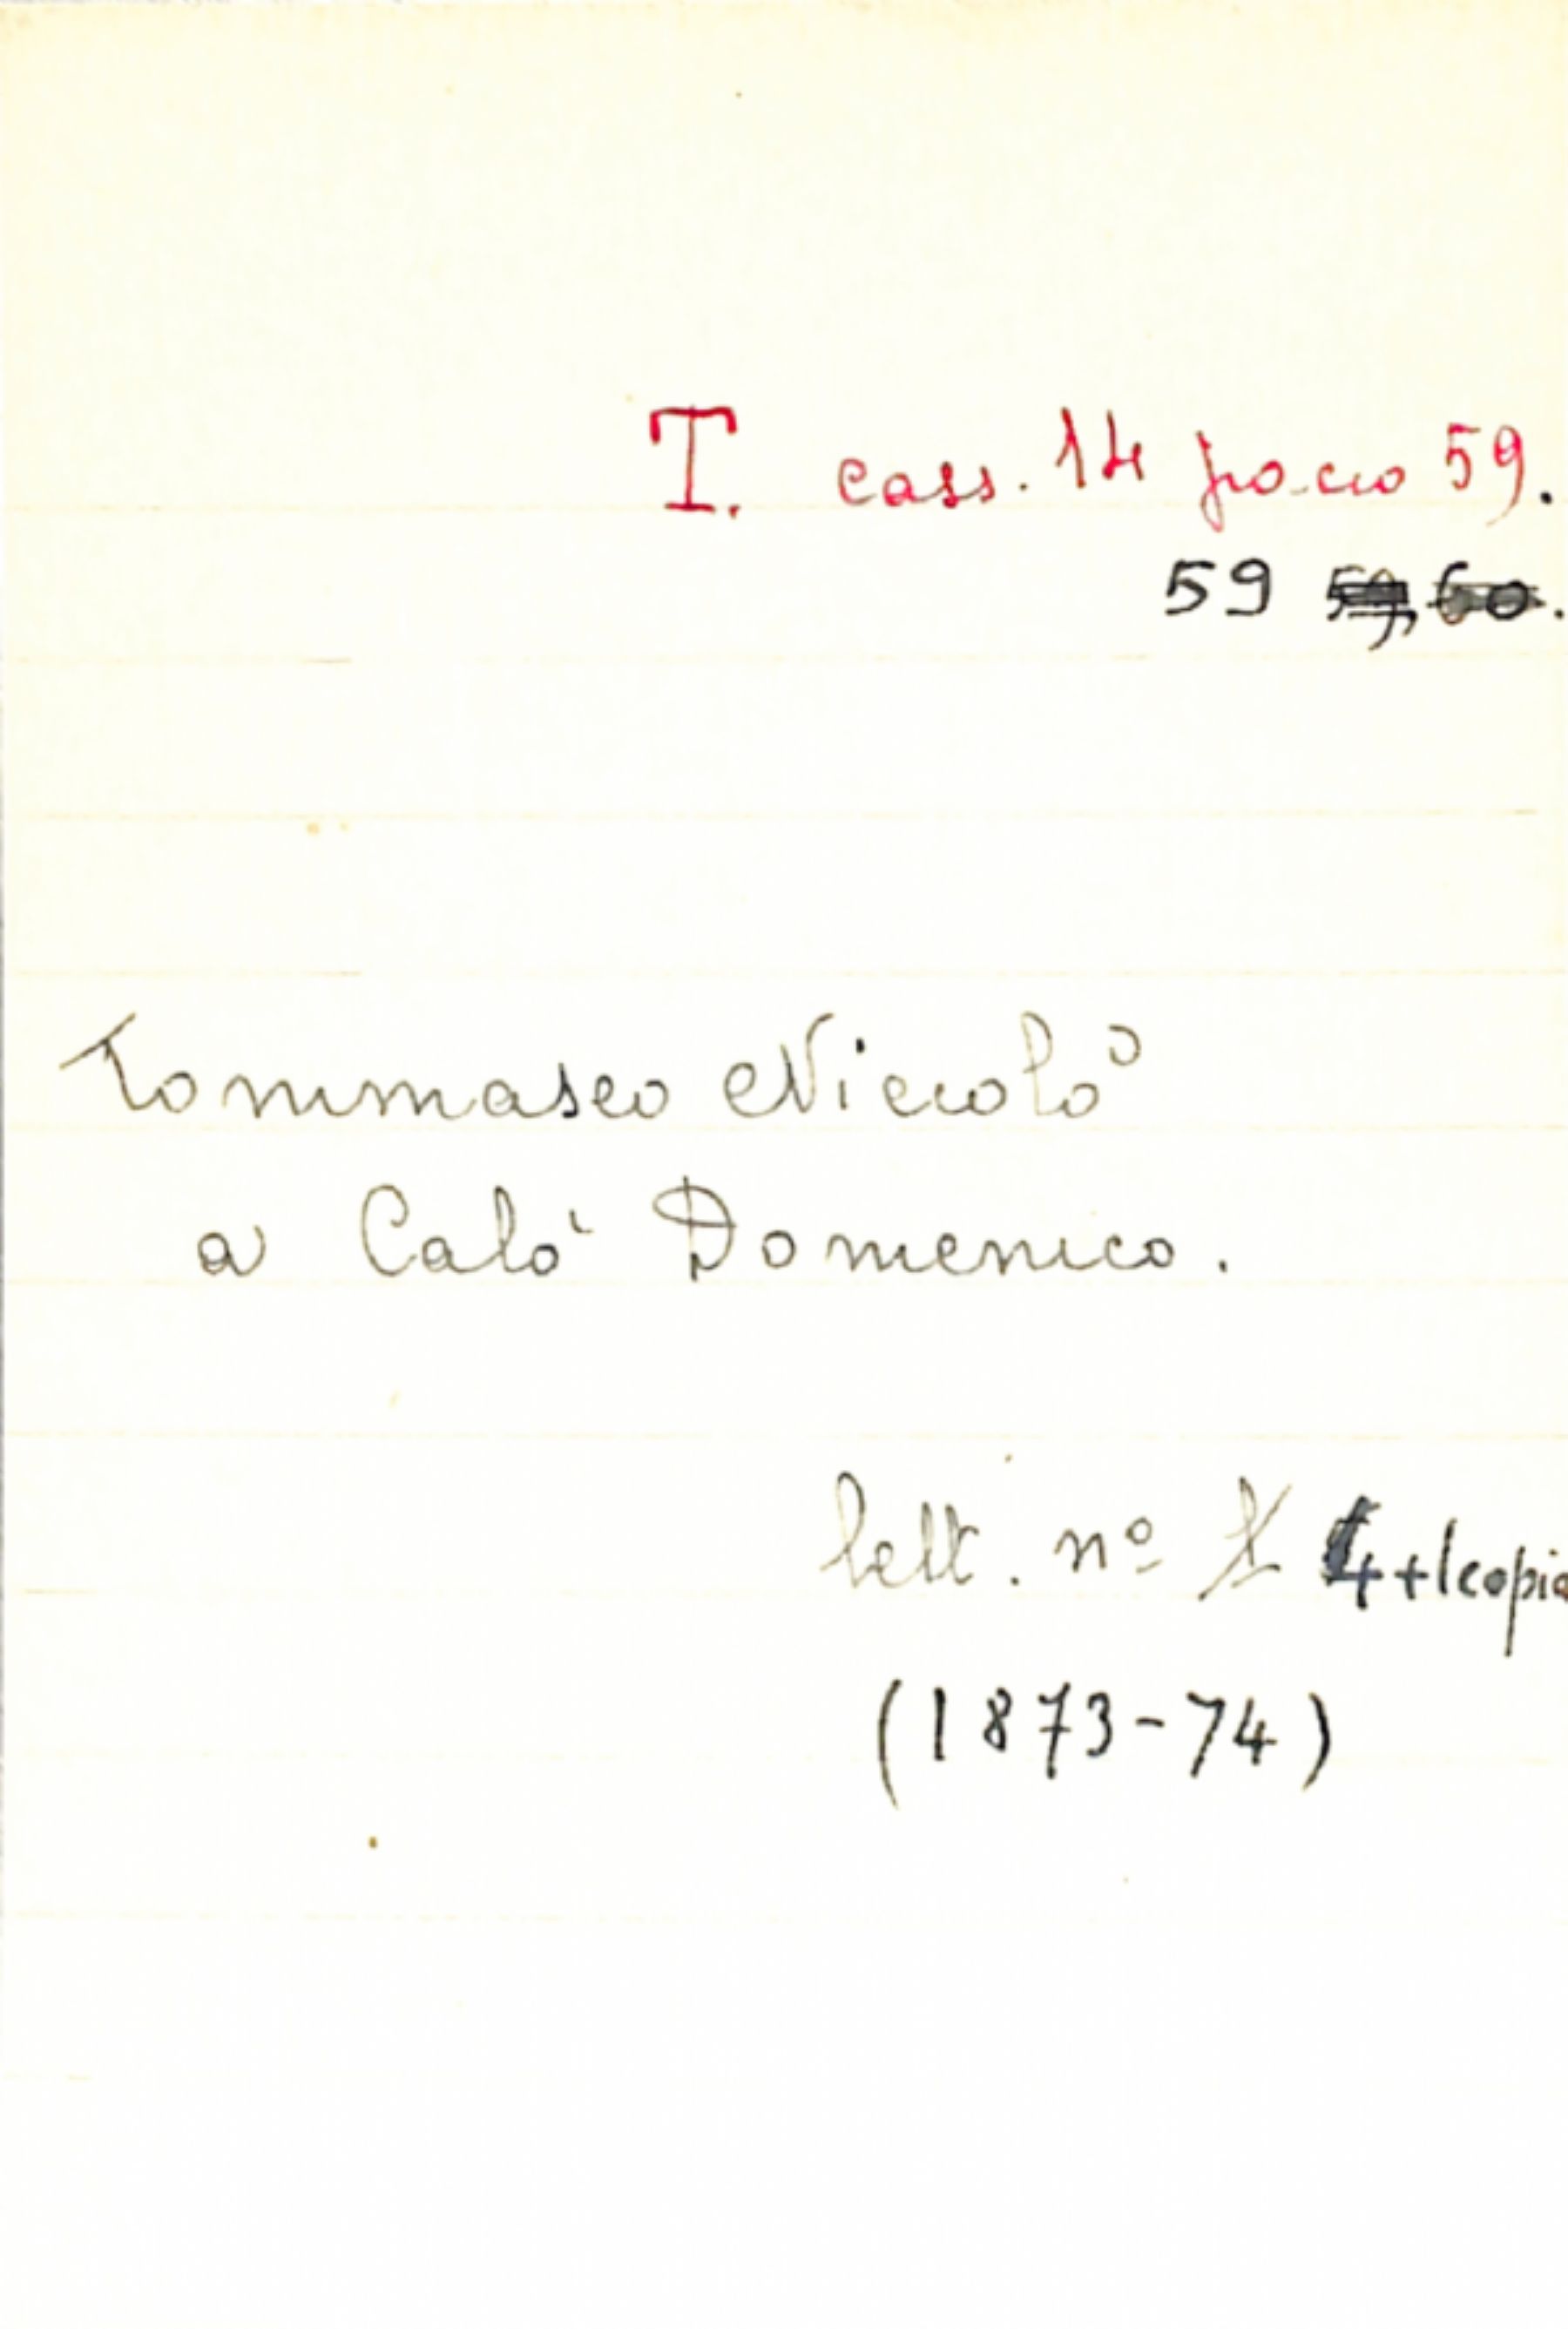 T. cass. 14 pacco 59.
59 59, 60.
Tommaseo Niccolò
a Calò Domenico.
lett. nº 4+1copia
(1873-74)